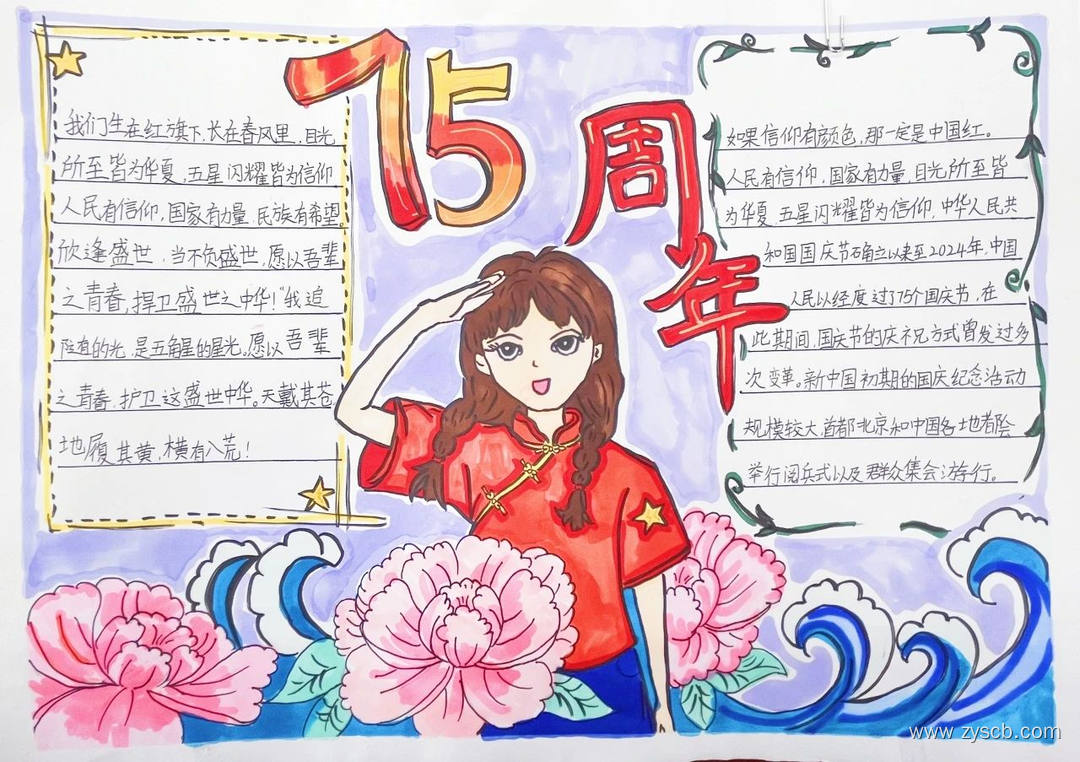 75
周年
我们生在红旗下,长在春风里,目光
所至皆为华夏,五星闪耀皆为信仰
人民有信仰,国家有力量,民族有希望。
欣逢盛世,当不负盛世,愿以吾辈
之青春,捍卫盛世之中华!“我追
随的光,是五角星的星光。愿以吾辈
之青春,护卫这盛世中华。天戴其苍
地履其黄,横有八荒!
如果信仰有颜色,那一定是中国红。
人民有信仰,国家有力量,目光所至皆
为华夏,五星闪耀皆为信仰,中华人民共
和国国庆节确立以来至2024年,中国
人民以经度过了75个国庆节,在
此期间,国庆节的庆祝方式曾发过多
次变革。新中国初期的国庆纪念活动
规模较大,首都北京和中国各地都会
举行阅兵式以及群众集会游行。
www.zyscb.com